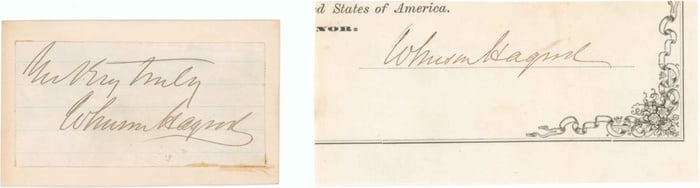 Yrs Very truly
Johnson Hagood
d States of America.
NOR:
Johnson Hagood